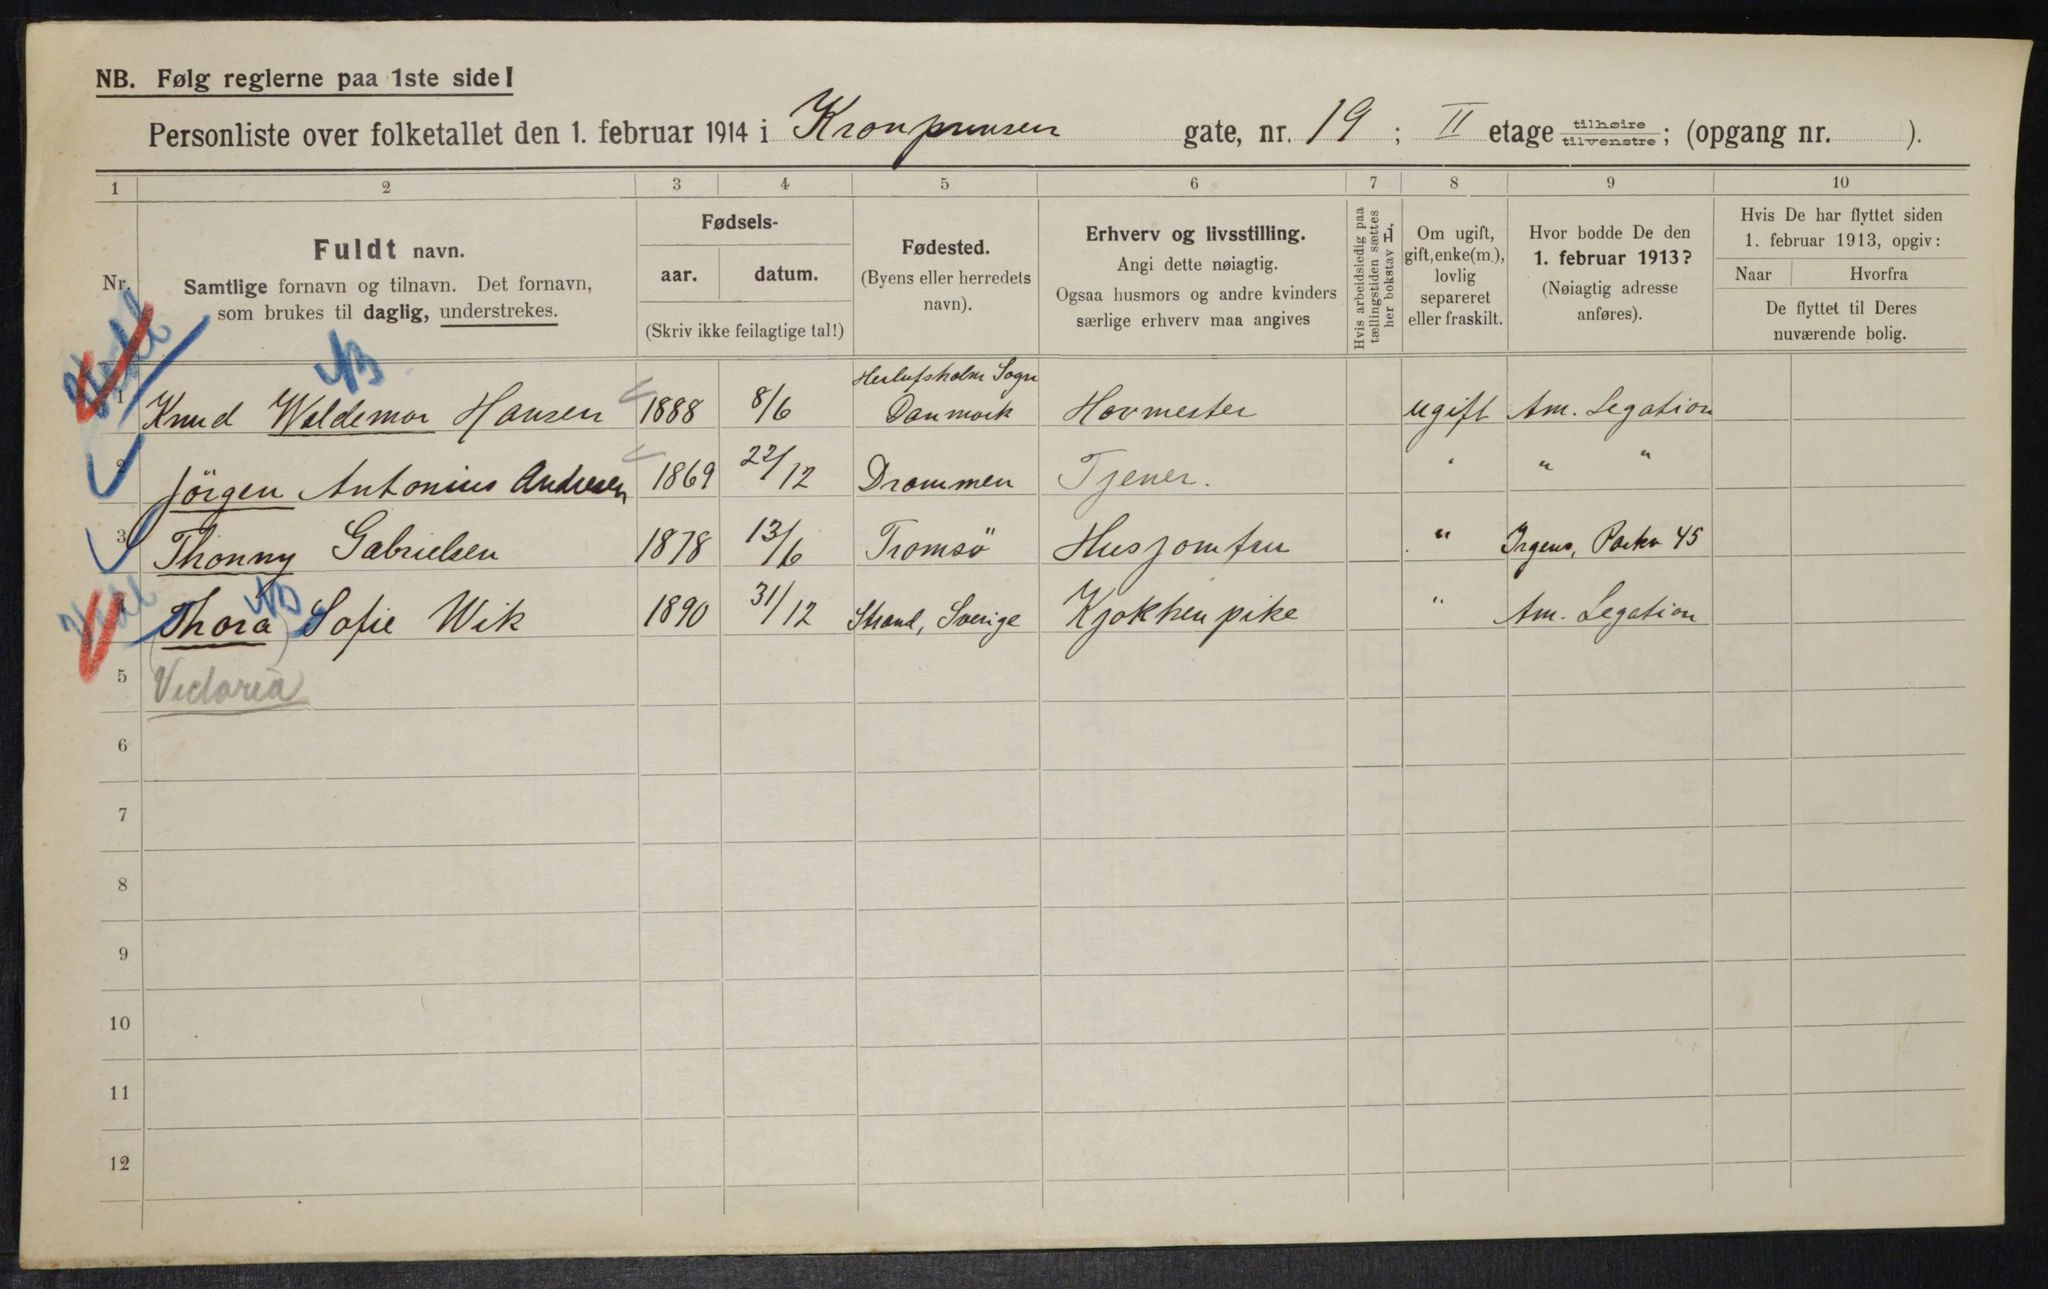 NB. Følg reglerne paa 1ste side!
Personliste over folketallet den 1. februar 1914 i Kronprinsen gate, nr. 19; II etage tilhøire tilvenstre; (opgang nr. ).
1 2 3 4 5 6 7 8 9 10
Nr.
Fuldt navn.
Samtlige fornavn og tilnavn. Det fornavn,
som brukes til daglig, understrekes.
Fødsels-
aar. datum.
(Skriv ikke feilagtige tal!)
Fødested.
(Byens eller herredets
navn).
Erhverv og livsstilling.
Angi dette nøiagtig.
Ogsaa husmors og andre kvinders
særlige erhverv maa angives
Hvis arbeidsledig paa
tællingstiden sættes
her bokstav L.
Om ugift,
gift, enke(m.),
lovlig
separeret
eller fraskilt.
Hvor bodde De den
1. februar 1913?
(Nøiagtig adresse
anføres).
Hvis De har flyttet siden
1. februar 1913, opgiv:
Naar Hvorfra
De flyttet til Deres
nuværende bolig.
NB
1 Knud Waldemar Hansen 1888 8/6 Herlufsholm Sogn Danmark Hovmester ugift Am. Legation
2 Jörgen Antonius Andresen 1869 22/12 Drammen Tjener. " " "
3 Thonny Gabrielsen 1878 13/6 Tromsö Husjomfru " Irgens, Parkv 45
NB
4 Thora Sofie Wik 1890 31/12 Strand, Sverige Kjøkken pike " Am. Legation
5 (Victoria)
6
7
8
9
10
11
12